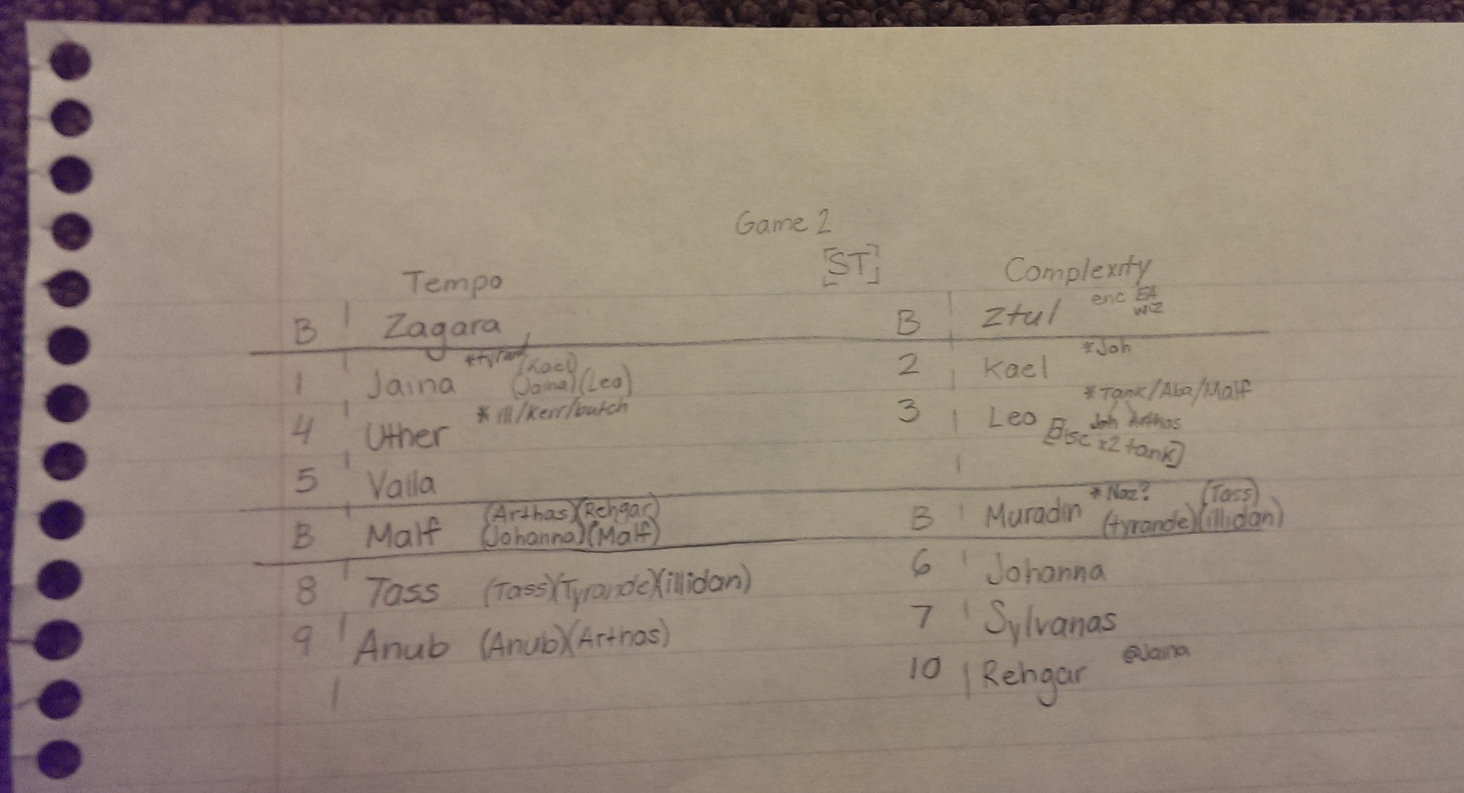 Game 2
[ST]
Tempo Complexity
B Zagara B Ztul enc EA
WIZ
1 Jaina *tyrand (Kael) 2 Kael *Joh
(Jaina)(Leo)
4 Uther *ill/Kerr/butch 3 Leo *Tank/Aba/Malf
Joh Arthas
[Else x2 tank]
5 Valla
B Malf (Arthas)(Rehgar) B Muradin *Naz? (Tass)
(Johanna)(Malf) (tyrande)(illidan)
8 Tass (Tass)(Tyrande)(illidan) 6 Johanna
9 Anub (Anub)(Arthas) 7 Sylvanas
10 Rehgar @Jaina